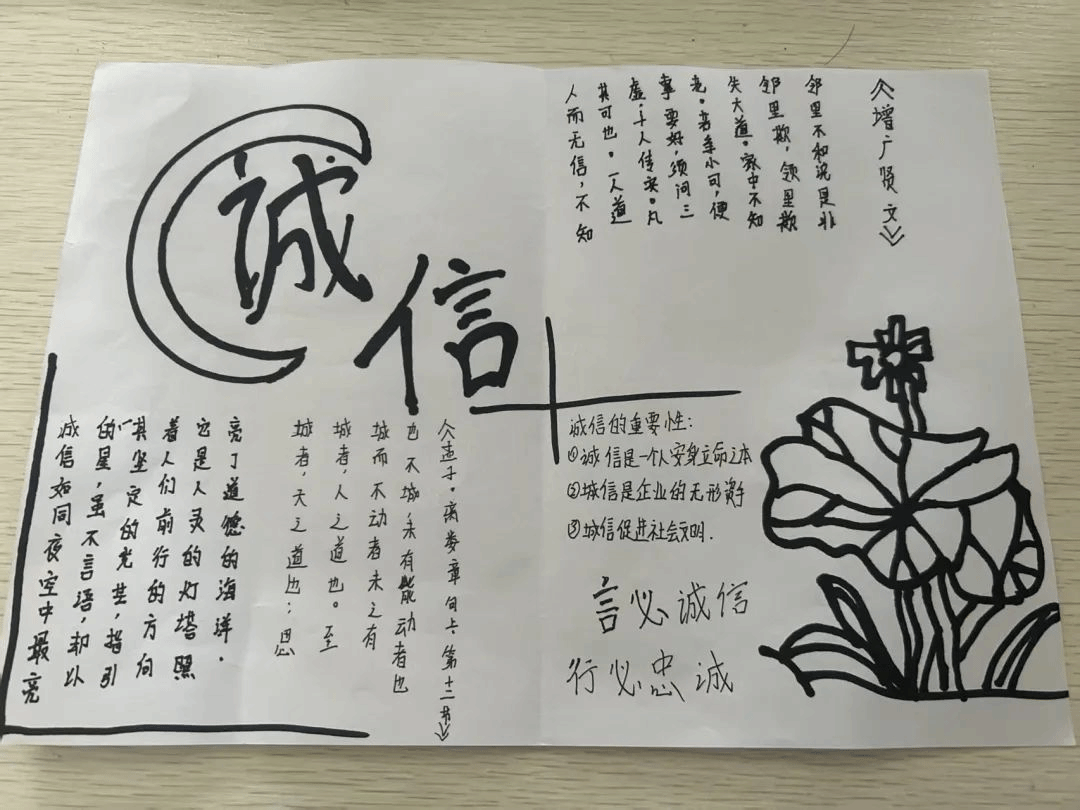 诚信
诚信如同夜空中最亮
的星,虽不言语,却以
其坚定的光芒,指引
着人们前行的方向
它是人灵的灯塔照
亮了道德的海洋.
城者,天之道也;思
城者,人之道也。至
城而不动者未之有
也不城,未有能动者也
《孟子·离娄章句上·第十二节》
人而无信,不知
其可也。一人道
虚,千人传实。凡
事要好,须问三
老。若争小可,便
失大道。家中不知
邻里欺,领里欺
邻里不和说是非
《增广贤文》
诚信的重要性:
①诚信是一个人安身立命之本
②城信是企业的无形资产
③城信促进社会文明.
言必诚信
行必忠诚